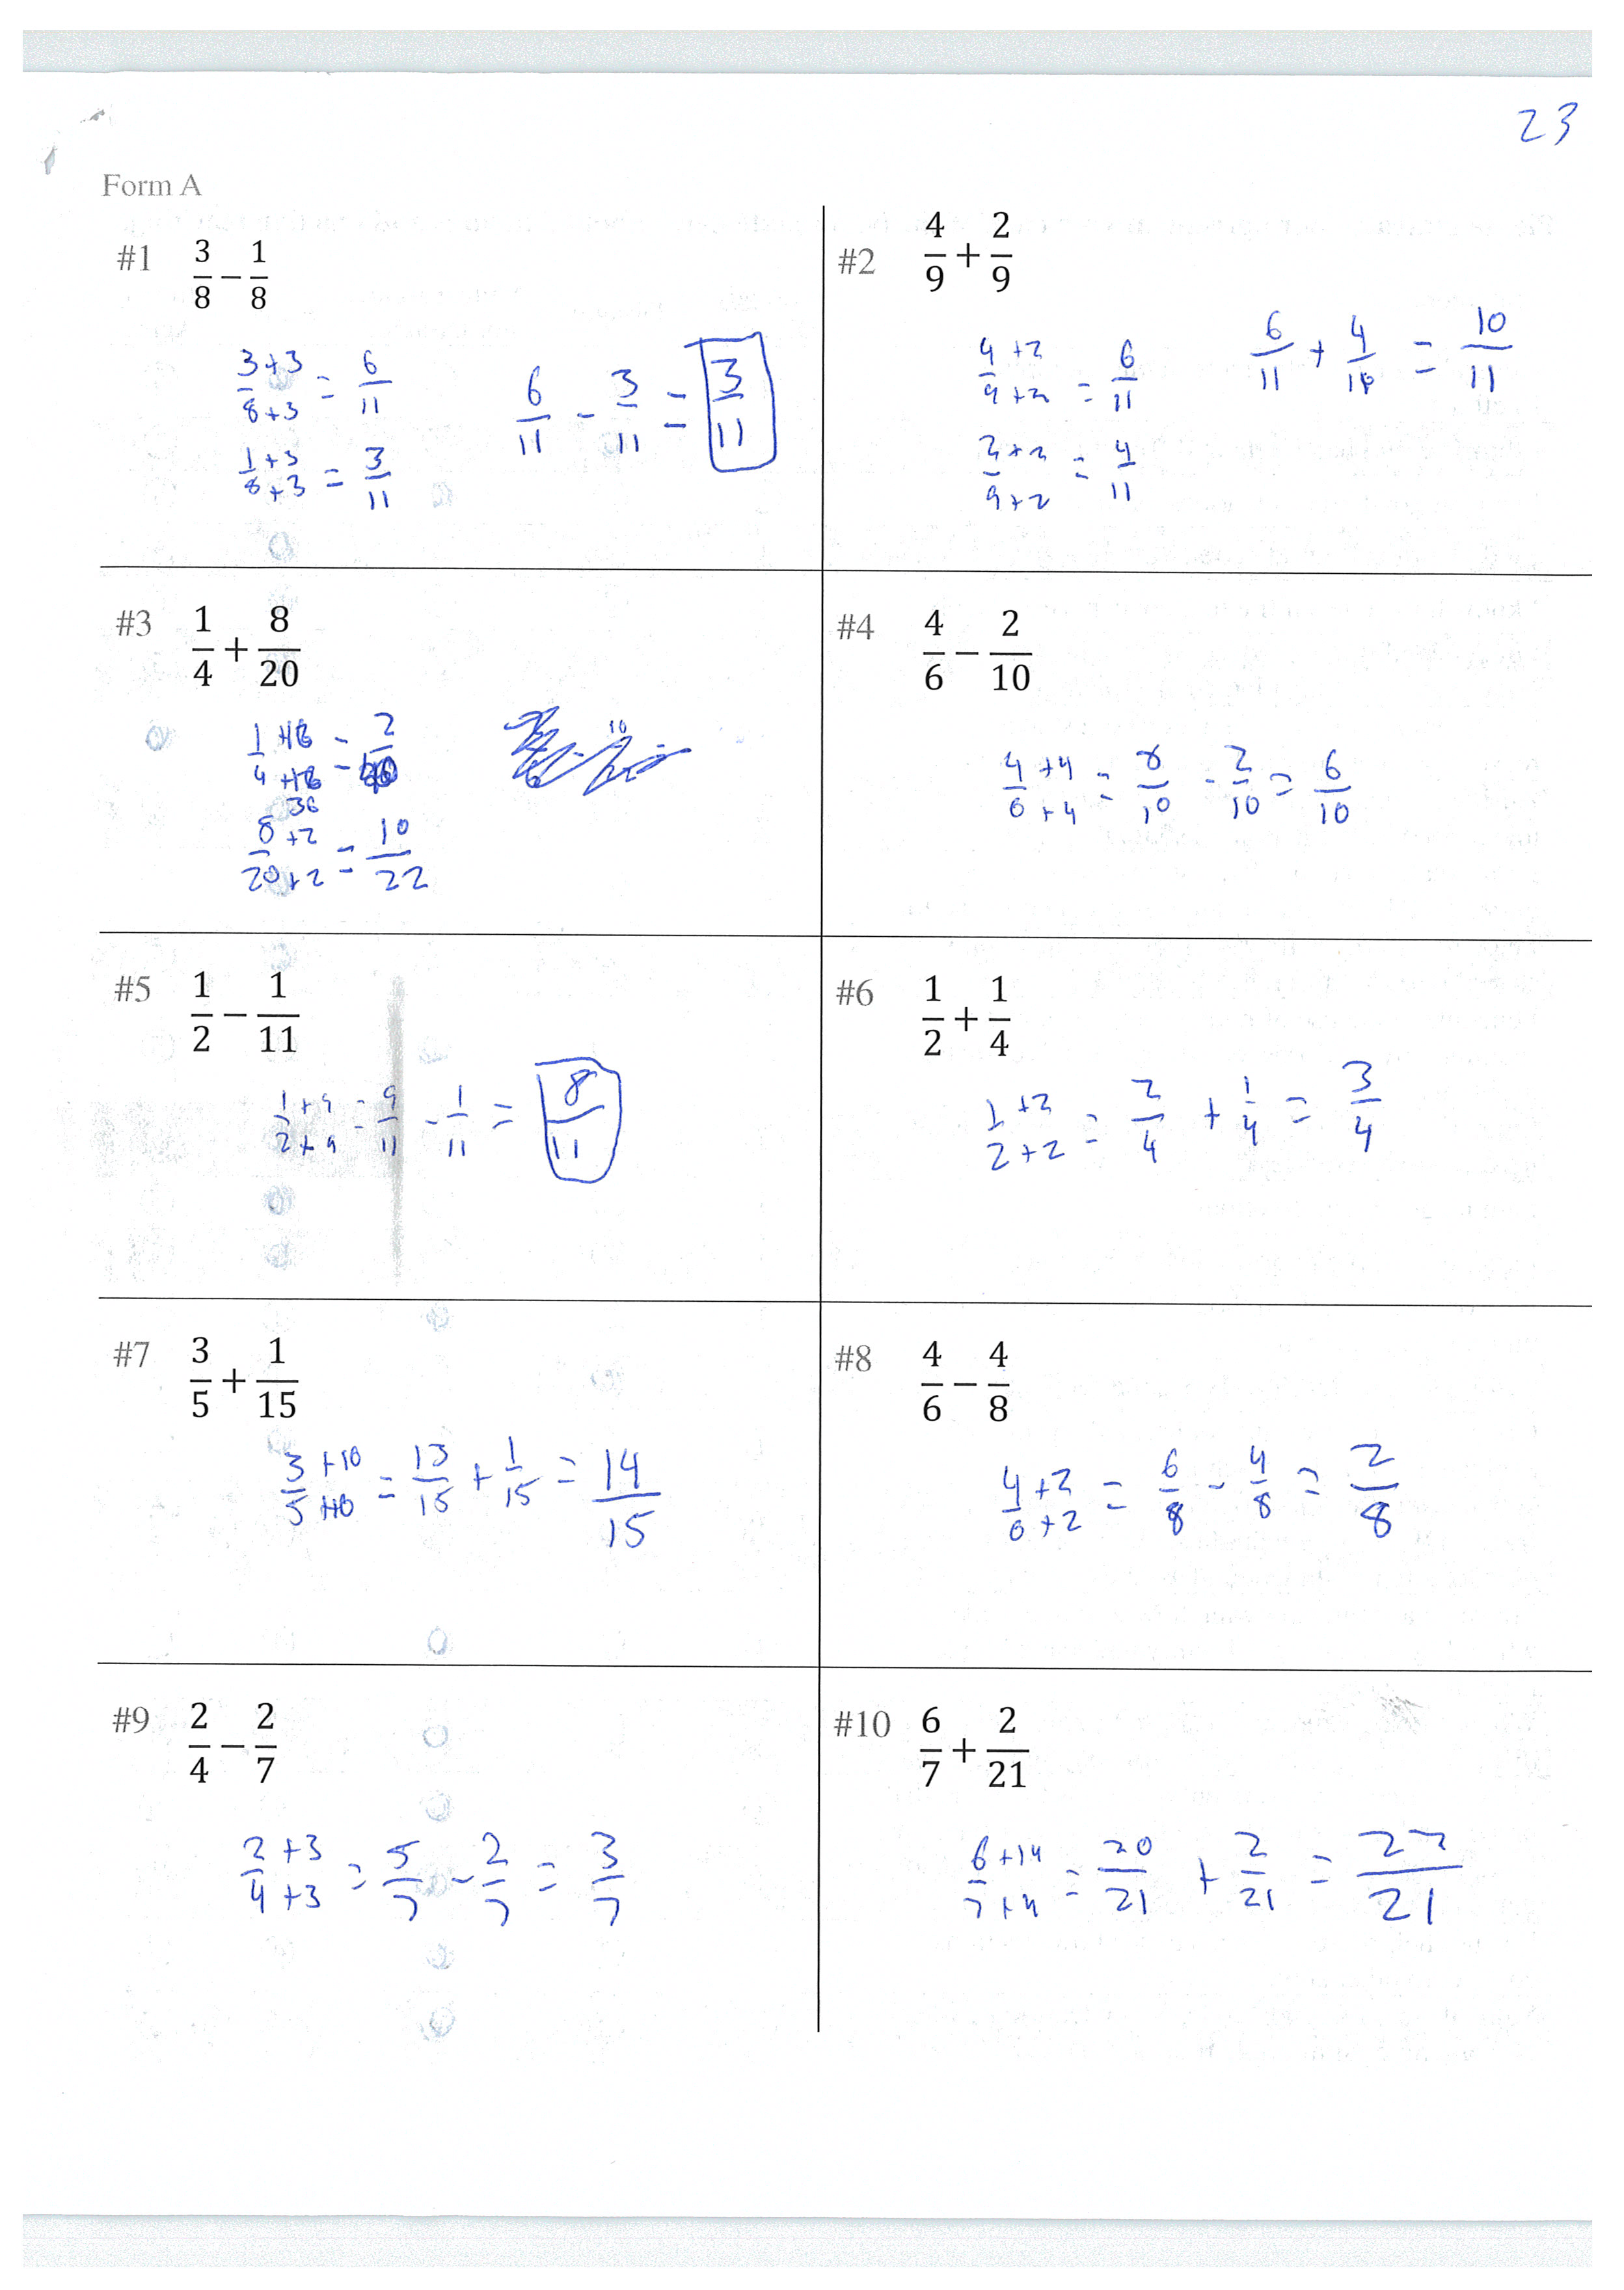 23
Form A
#1 3/8 − 1/8
3+3/8+3 = 6/11
1+3/8+3 = 3/11
6/11 - 3/11 = 3/11
#2 4/9 + 2/9
4+2/9+2 = 6/11
2+2/9+2 = 4/11
6/11 + 4/11 = 10/11
#3 1/4 + 8/20
8+2/20+2 = 10/22
#4 4/6 − 2/10
4+4/6+4 = 8/10 - 2/10 = 6/10
#5 1/2 − 1/11
1+9/2+9 = 9/11 - 1/11 = 8/11
#6 1/2 + 1/4
1+2/2+2 = 2/4 + 1/4 = 3/4
#7 3/5 + 1/15
3+10/5+10 = 13/15 + 1/15 = 14/15
#8 4/6 − 4/8
4+2/6+2 = 6/8 - 4/8 = 2/8
#9 2/4 − 2/7
2+3/4+3 = 5/7 - 2/7 = 3/7
#10 6/7 + 2/21
6+14/7+14 = 20/21 + 2/21 = 22/21